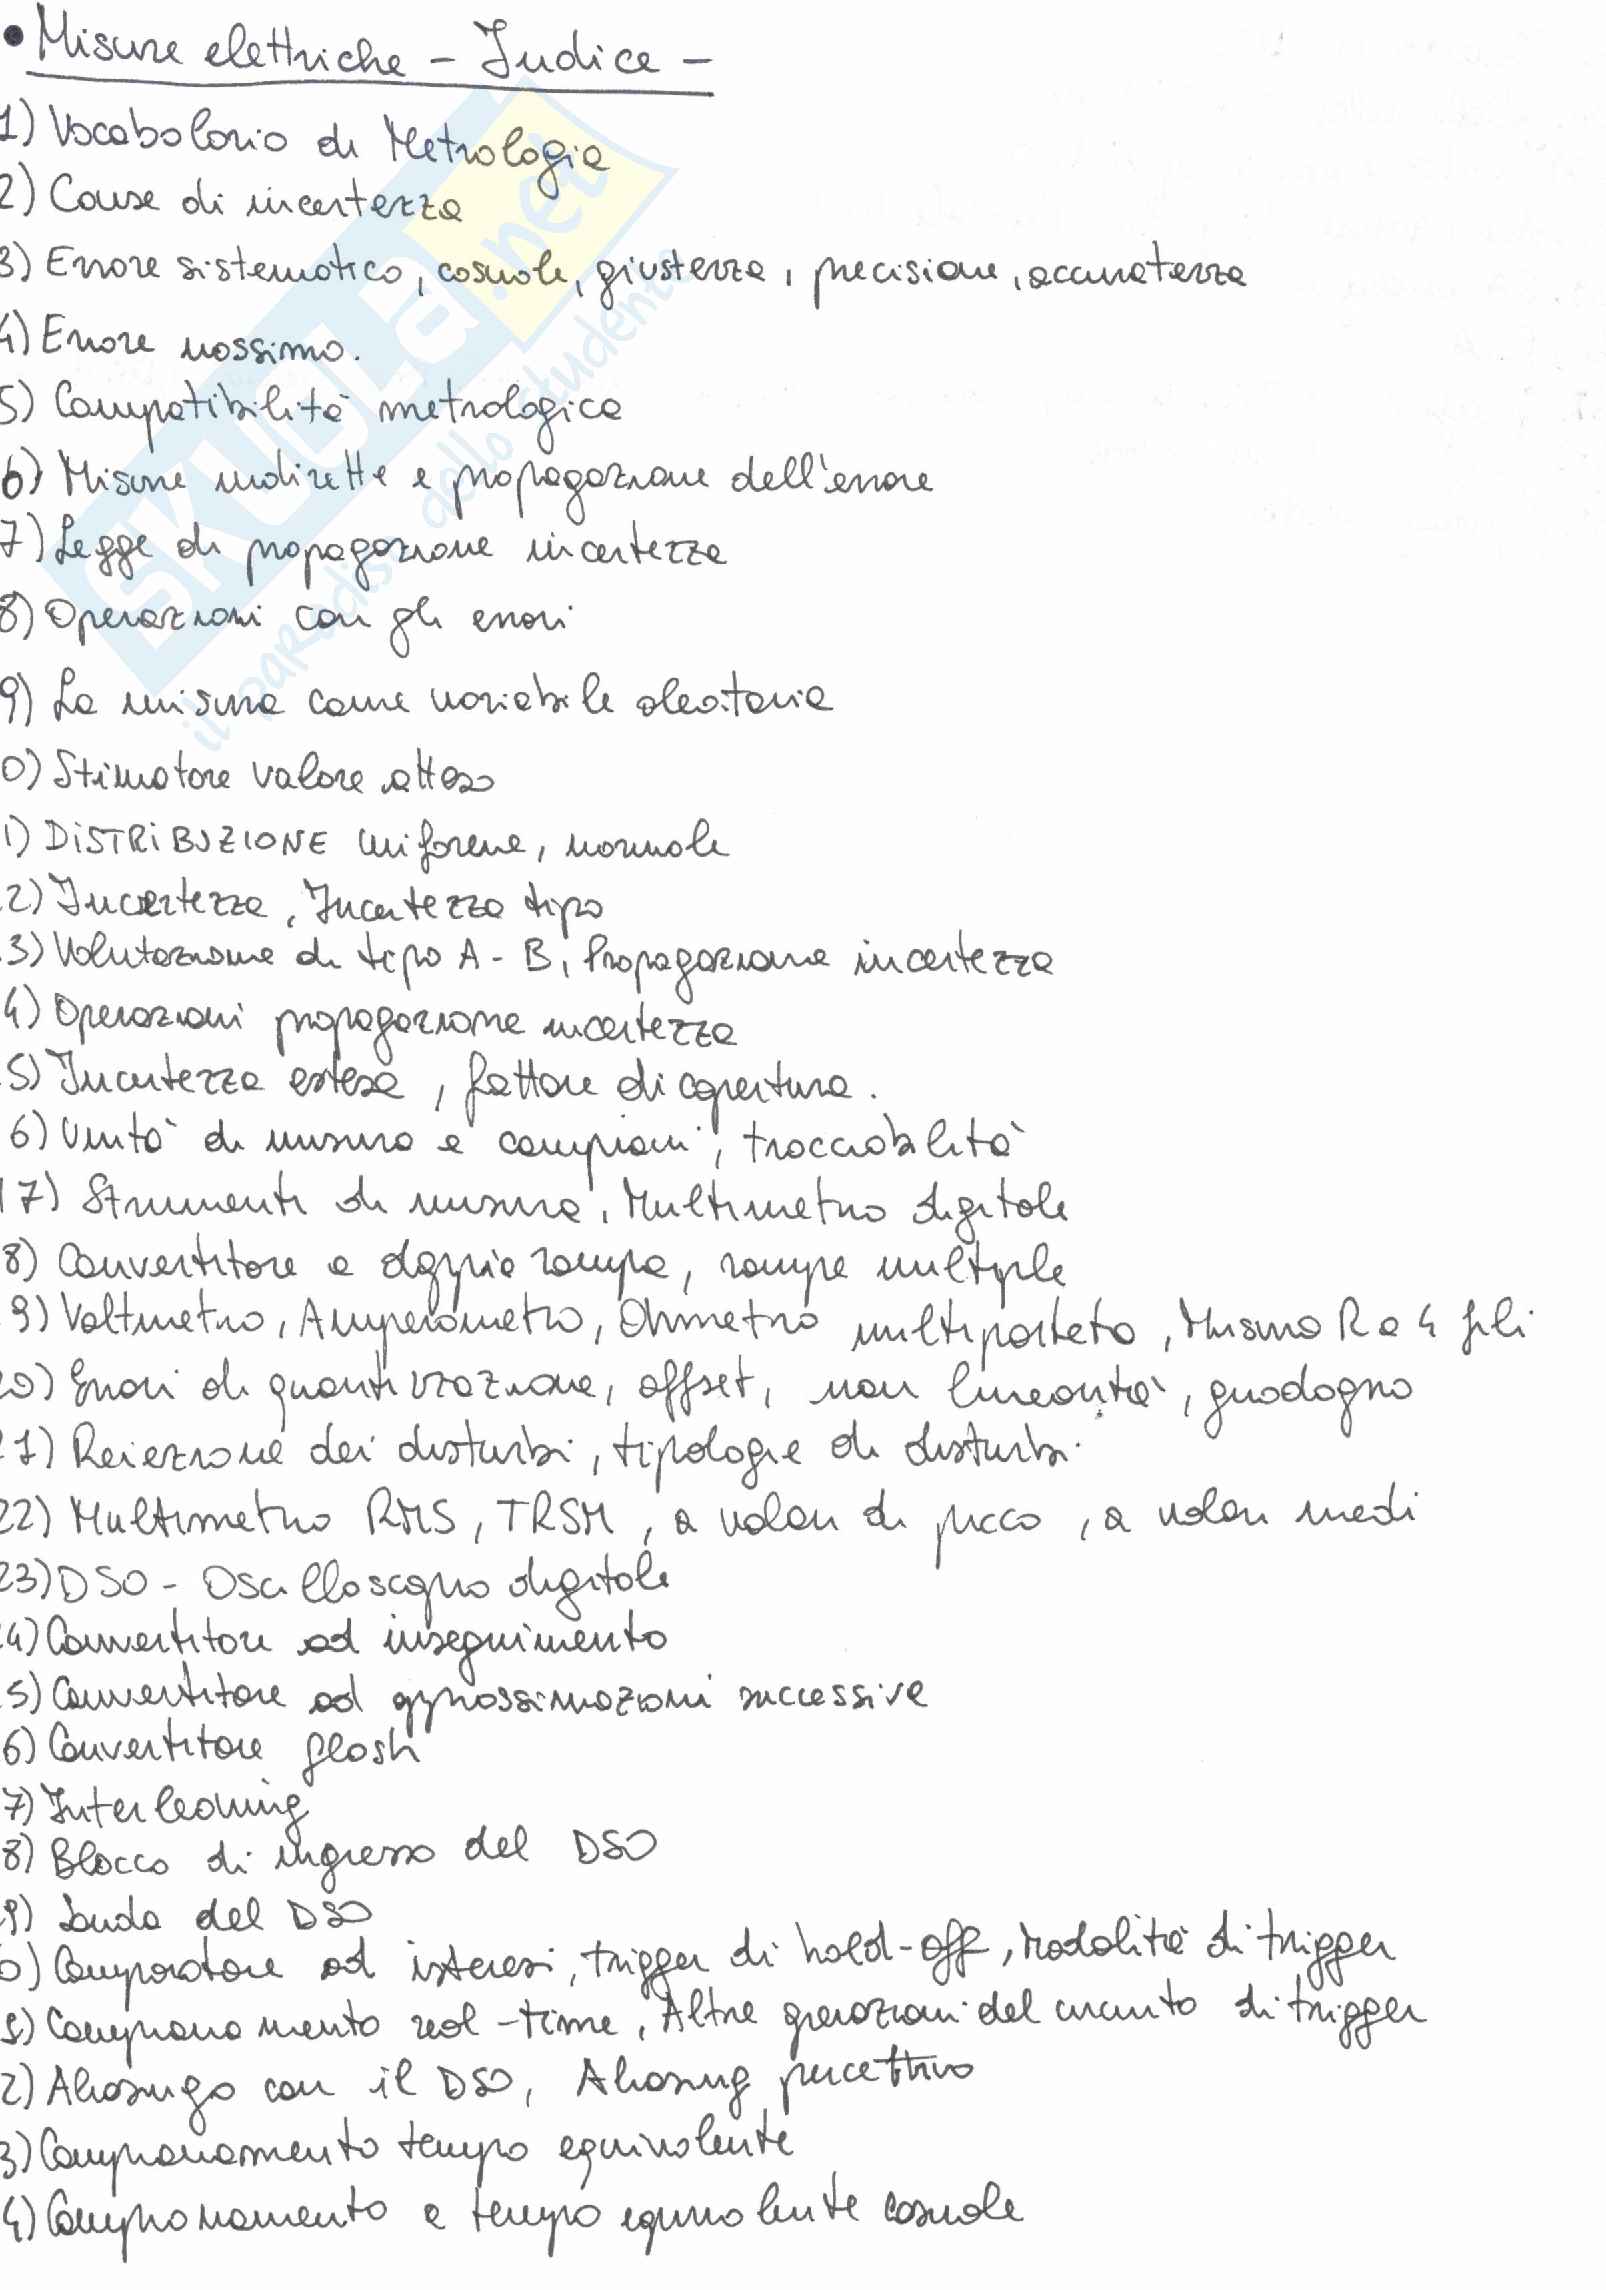 • Misure elettriche - Indice -
1) Vocabolario di Metrologia
2) Cause di incertezza
3) Errore sistematico, casuale, giustezza, precisione, accuratezza
4) Errore massimo.
5) Compatibilità metrologica
6) Misure indirette e propagazione dell'errore
7) Legge di propagazione incertezza
8) Operazioni con gli errori
9) La misura come variabile aleatoria
0) Stimatore valore atteso
1) DISTRIBUZIONE uniforme, normale
2) Incertezza, Incertezza tipo
3) Valutazione di tipo A - B, Propagazione incertezza
4) Operazioni propagazione incertezza
5) Incertezza estesa, fattore di copertura.
6) Unità di misura e campioni, tracciabilità
17) Strumenti di misura, Multimetro digitale
8) Convertitore a doppia rampa, rampe multiple
9) Voltmetro, Amperometro, Ohmetro multiportata, Misura R a 4 fili
20) Errori di quantizzazione, offset, non linearità, guadagno
21) Reiezione dei disturbi, tipologie di disturbi
22) Multimetro RMS, TRSM, a valori di picco, a valori medi
23) DSO - Oscilloscopio digitale
4) Convertitore ad inseguimento
5) Convertitore ad approssimazioni successive
6) Convertitore flash
7) Interleaving
8) Blocco di ingresso del DSO
9) Sonda del DSO
0) Comparatore ad isteresi, trigger di hold-off, Modalità di trigger
1) Campionamento real-time, Altre operazioni del circuito di trigger
2) Aliasing con il DSO, Aliasing percettivo
3) Campionamento tempo equivalente
4) Campionamento a tempo equivalente casuale
SKUOLA.net
il paradiso dello studente